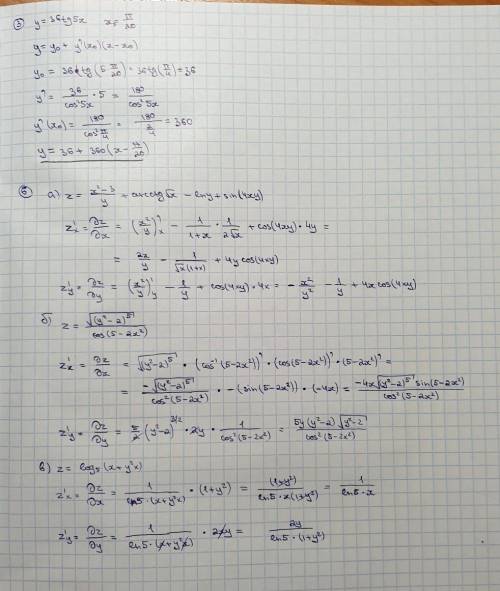 ③ y = 36 tg 5x   x₀ = π/20
y = y₀ + y'(x₀)(x - x₀)
y₀ = 36 · tg(5 π/20) = 36 tg(π/4) = 36
y' = 36/cos²5x · 5 = 180/cos²5x
y'(x₀) = 180/cos² π/4 = 180/(2/4) = 360
y = 36 + 360(x - π/20)
⑤ а) z = (x² - 3)/y + arcctg√x - ln y + sin(4xy)
z'ₓ = ∂z/∂x = (x²/y)'ₓ - 1/(1+x) · 1/(2√x) + cos(4xy) · 4y =
= 2x/y - 1/(√x(1+x)) + 4y cos(4xy)
z'y = ∂z/∂y = (x²/y)'y - 1/y + cos(4xy) · 4x = - x²/y² - 1/y + 4x cos(4xy)
б) z = √((y² - 2)⁵)/cos(5 - 2x²)
z'ₓ = ∂z/∂x = √((y² - 2)⁵) · (cos⁻¹(5 - 2x²))' · (cos(5 - 2x²))' · (5 - 2x²)' =
= -√((y² - 2)⁵)/cos²(5 - 2x²) · -(sin(5 - 2x²)) · (-4x) = -4x√((y² - 2)⁵) sin(5 - 2x²)/cos²(5 - 2x²)
z'y = ∂z/∂y = 5/2 (y² - 2)^(3/2) · 2y · 1/cos²(5 - 2x²) = 5y(y² - 2)√(y² - 2)/cos²(5 - 2x²)
в) z = log₅(x + y²x)
z'ₓ = ∂z/∂x = 1/(ln5 · (x + y²x)) · (1 + y²) = (1 + y²)/(ln5 · x(1 + y²)) = 1/(ln5 · x)
z'y = ∂z/∂y = 1/(ln5 · (x + y²x)) · 2xy = 2y/(ln5 · (1 + y²))